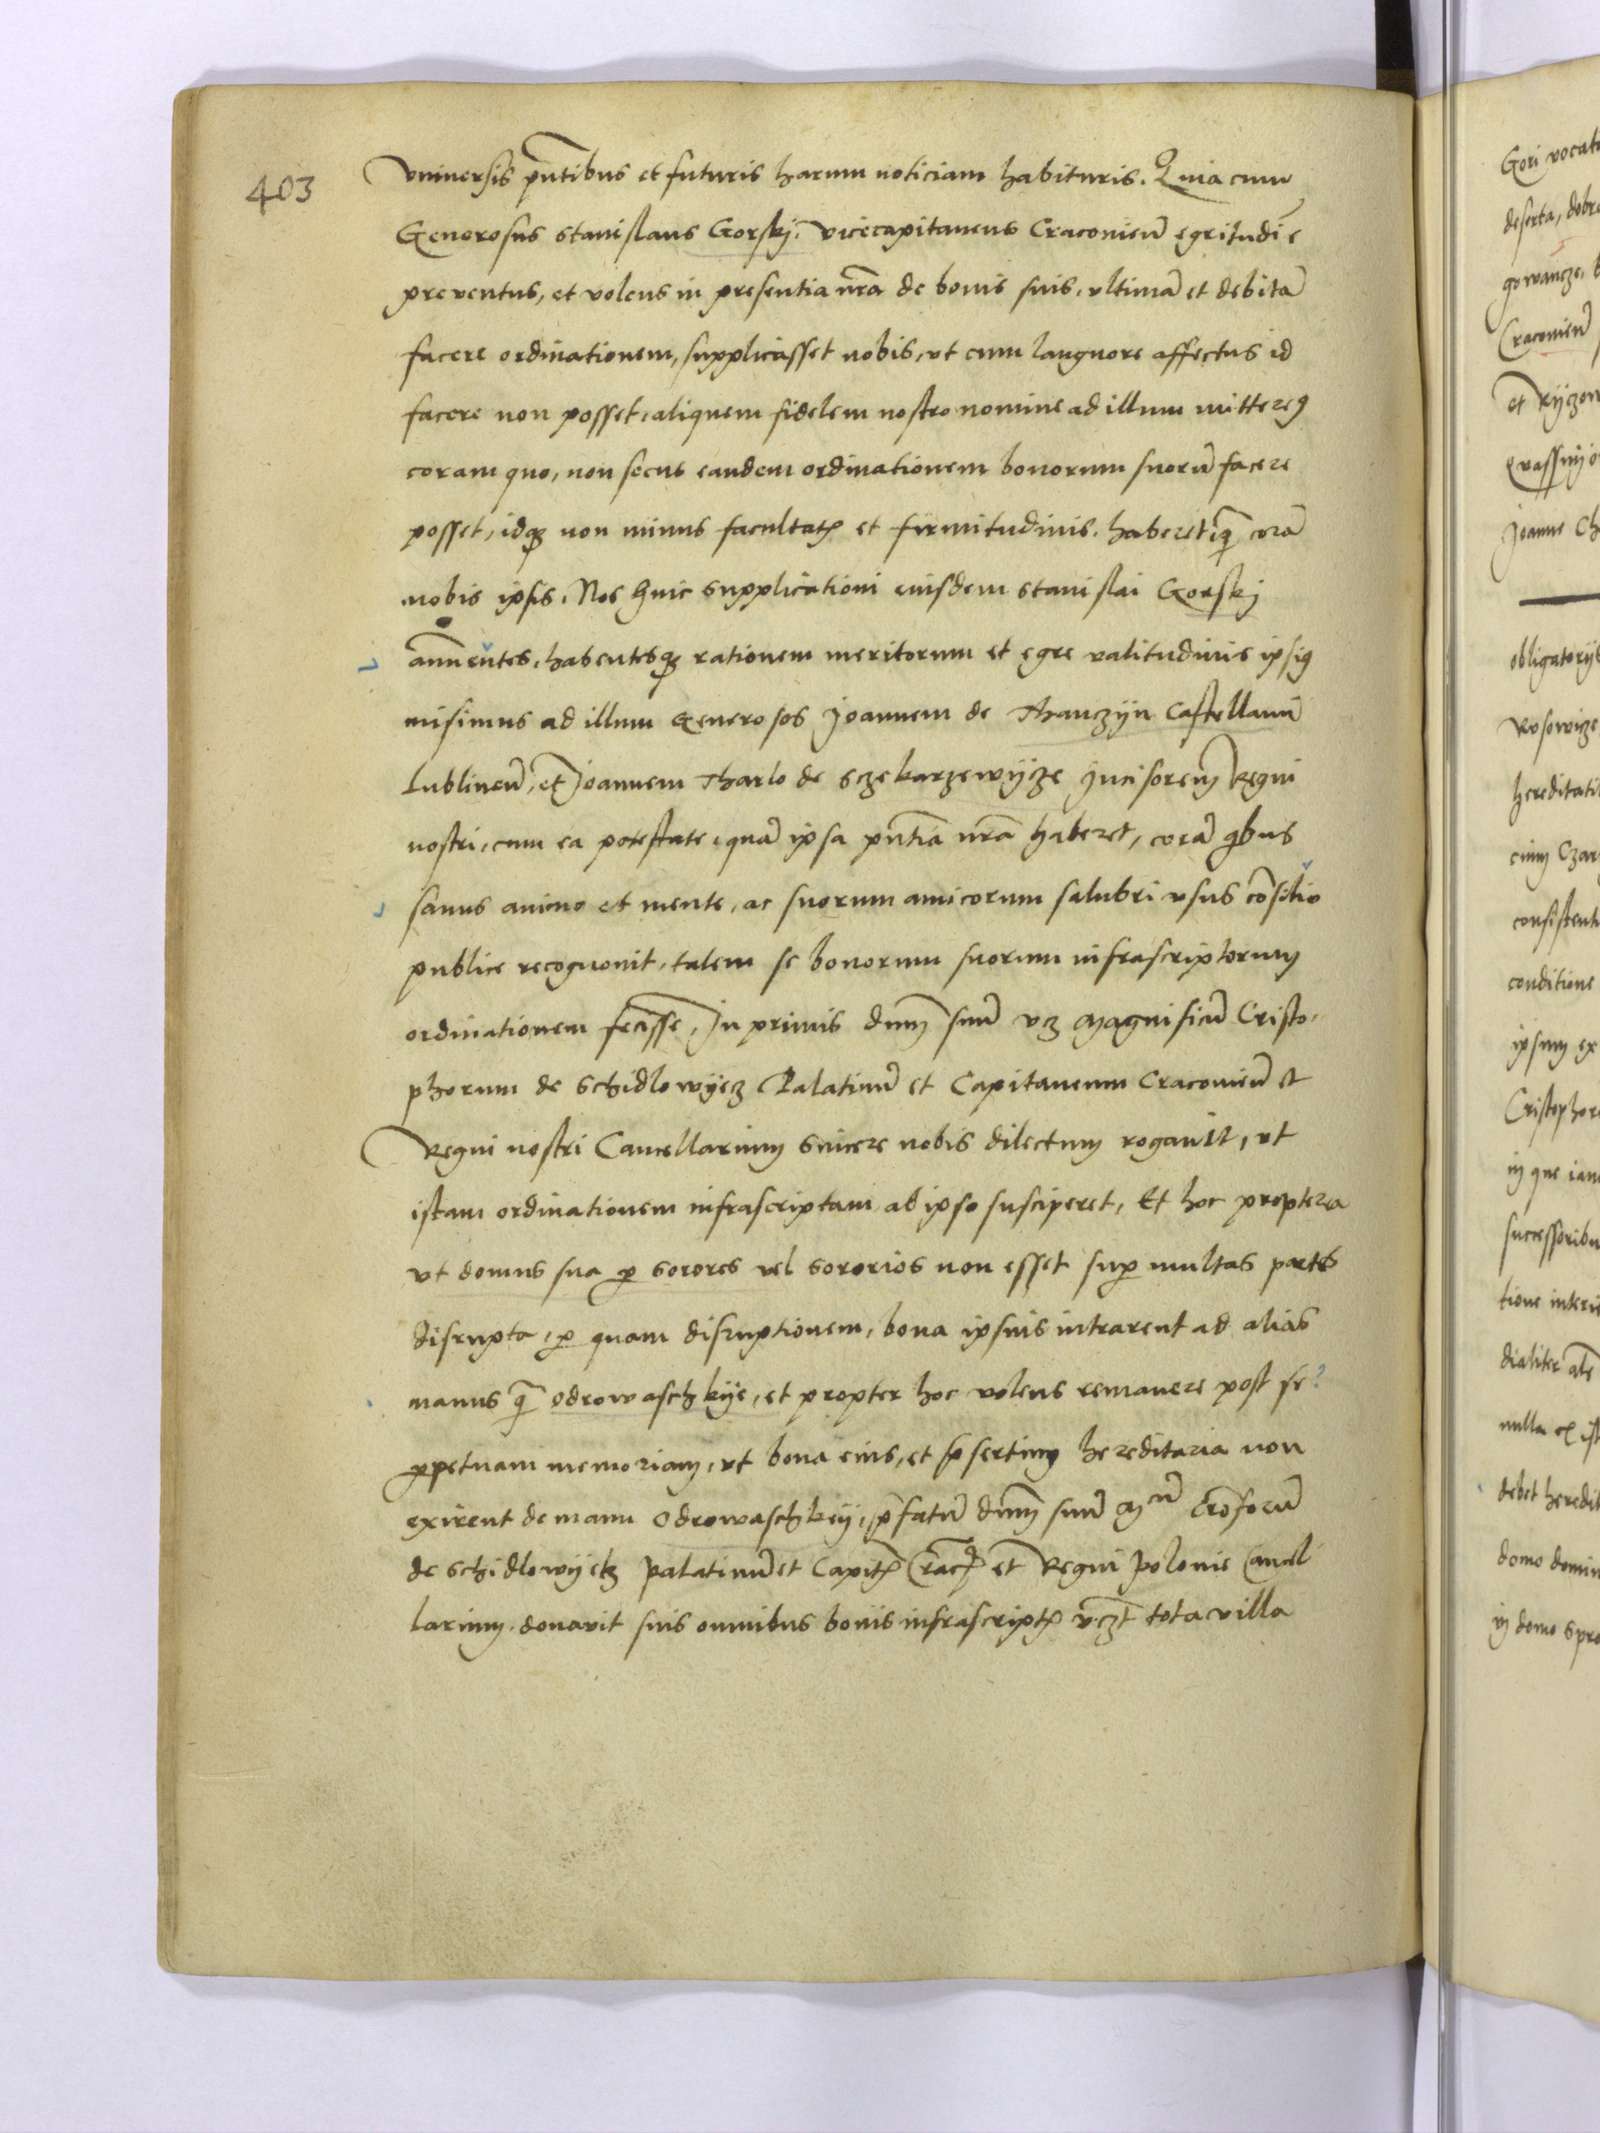 403
Vniuersis pñtibus et futuris harum noticiam habituris. Quia cum
Generosus Stanislaus Gorskj, vicecapitaneus Cracovieñ egritudiē
preventus, et volens in presentia nrã de bonis suis, vltimā et debitā
facere ordinationem, supplicasset nobis, vt cum languore affectus id
facere non posset, aliquem fidelem nostro nomine ad illum mitterem9
coram quo, non secus eandem ordinationem bonorum suorū facere
posset, idq3 non minus facultatꝭ et firmitudinis, haberet, q̃ corā
nobis ipsis, Nos huic supplicationi eiusdem Stanislai Gorskj
annuentes, habentesq3 rationem meritorum et egre valitudinis ipsi9
misimus ad illum Generosos Joannem de Thanczÿn Castellanū
Lublineñ, et Joannem Tharlo de Sczekarzewÿcze Jncisorem Regni
nostri, cum ea potestate, quā ipsa pñtia nrã haberet, corā qbus
sanus animo et mente, ac suorum amicorum salubri vsus cõsilio
publice recognouit, talem se bonorum suorum infrascriptorum
ordinationem fecisse, Jn primis dnm̃ suū vz Magnificū Cristo-
phorum de Schidlowÿecz Palatinū et Capitaneum Cracovieñ et
Regni nostri Cancellarium sincere nobis dilectum rogauit, vt
istam ordinationem infrascriptam ab ipso susciperet, Et hoc propterea
vt domus sua ꝑ sorores vel sororios non esset suꝑ multas partes
disrupta, ꝑ quam disruptionem, bona ipsius intrarent ad alias
manus q̃ Odrowaschkÿe, et propter hoc volens remanere post se
ꝑpetuam memoriam, vt bona eius, et p̃sertim hereditaria non
exirent de manu Odrowaschkÿ, p̃fatū dnm̃ suū Mcū Crõforū
de Schidlowÿetz palatinū et Capitꝭ Cracꝭ et Regni Polonie Cancel
larium, donavit suis omnibus bonis infrascriptꝭ vczt tota villa
Gori vocat
deserta,
Craconieñ
et
Joanne Ch
obligatorÿs
hereditati
conditione
ipsum ex
successoribu
dialiter
debet heredit
domo domin